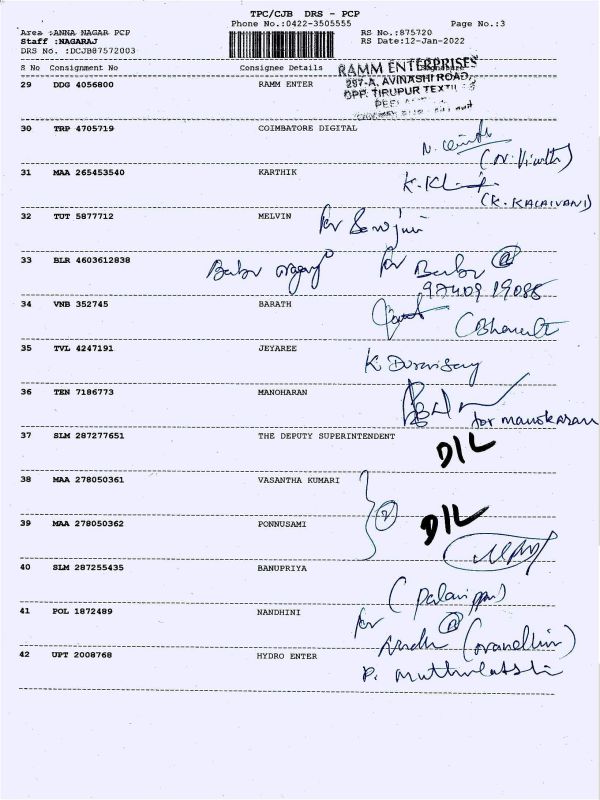 TPC/CJB DRS - PCP
Phone No.:0422-3505555 Page No.:3
Area :ANNA NAGAR PCP RS No.:875720
Staff :NAGARAJ RS Date:12-Jan-2022
DRS No. :DCJB87572003
S No Consignment No Consignee Details Signature
RAMM ENTERPRISES
297-A, AVINASHI ROAD,
OPP. TIRUPUR TEXTILES
29 DDG 4056800 RAMM ENTER
30 TRP 4705719 COIMBATORE DIGITAL
31 MAA 265453540 KARTHIK
(K. KALAIVANI)
32 TUT 5877712 MELVIN for
33 BLR 4603612838 Babu for Babu
97409 19085
34 VNB 352745 BARATH
35 TVL 4247191 JEYAREE
K
36 TEN 7186773 MANOHARAN
for manokaran
37 SLM 287277651 THE DEPUTY SUPERINTENDENT
D/L
38 MAA 278050361 VASANTHA KUMARI
2
39 MAA 278050362 PONNUSAMI D/L
40 SLM 287255435 BANUPRIYA
41 POL 1872489 NANDHINI for
42 UPT 2008768 HYDRO ENTER
P. Muthulatshmi